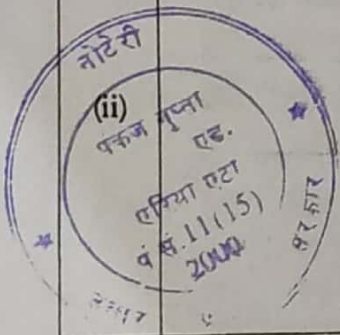 नोटेरी
(ii)
पंकज गुप्ता
एड.
एरिया एटा
पं सं. 11(15)
2000
सरकार